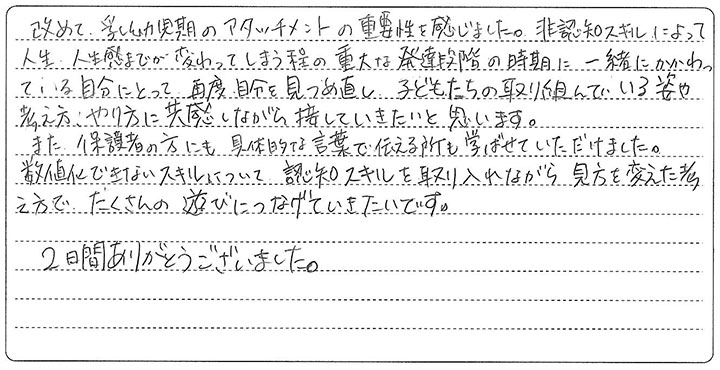 改めて、乳幼児期のアタッチメントの重要性を感じました。非認知スキルによって
人生、人生感までが変わってしまう程の重大な発達段階の時期に、一緒にかかわっ
ている自分にとって、再度自分を見つめ直し、子どもたちの取り組んでいる姿や
考え方、やり方に共感しながら接していきたいと思います。
また、保護者の方にも、具体的な言葉で伝える所も学ばせていただけました。
数値化できないスキルについて、認知スキルを取り入れながら、見方を変えた考
え方で、たくさんの遊びにつなげていきたいです。
2日間ありがとうございました。